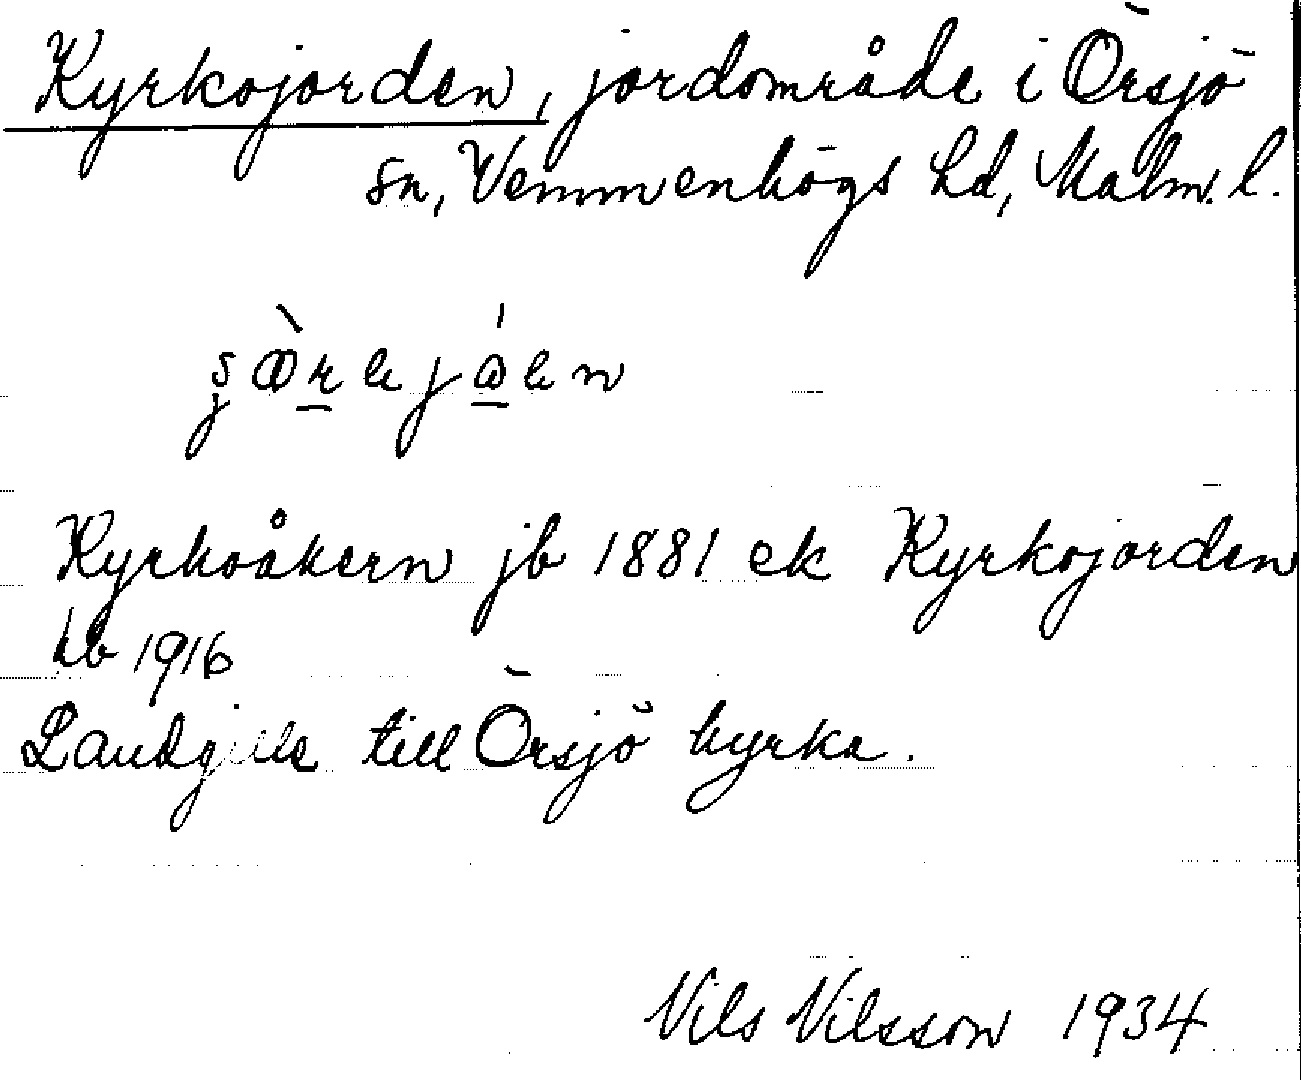 Kyrkojorden, jordområde i Örsjö
sn, Vemmenhögs hd, Malm. l.
Kyrkoåkern jb 1881 ek Kyrkojorden
hb 1916
Landgille till Örsjö kyrka.
Nils Nilsson 1934